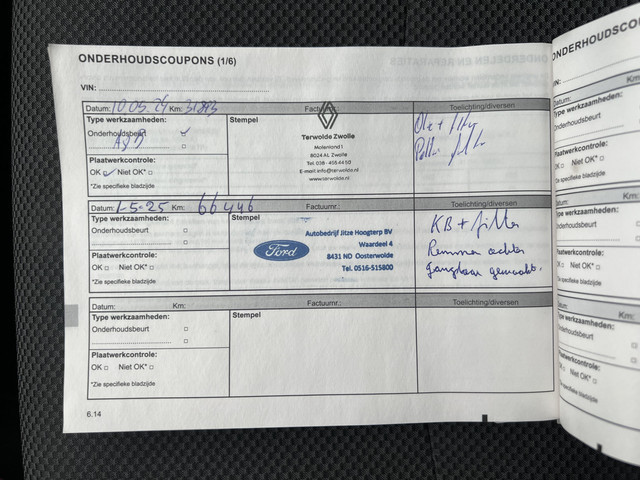 ONDERHOUDSCOUPONS (1/6)
VIN:
Datum: 10.05.24 Km: 31893 Factuurnr.: Toelichting/diversen
Type werkzaamheden: Stempel
Onderhoudsbeurt
Olie +
Terwolde Zwolle
Molenland 1
8024 AL Zwolle
Tel. 038 - 455 44 50
E-mail info@terwolde.nl
www.terwolde.nl
Plaatwerkcontrole:
OK Niet OK*
*Zie specifieke bladzijde
Datum: 1-5-25 Km: 66446 Factuurnr.: Toelichting/diversen
Type werkzaamheden: Stempel
Onderhoudsbeurt
Autobedrijf Jitze Hoogterp BV
Waardeel 4
8431 ND Oosterwolde
Tel. 0516-515800
Ford
KB + filter
Remmen achter
Gangbaar gemaakt.
Plaatwerkcontrole:
OK Niet OK*
*Zie specifieke bladzijde
Datum: Km: Factuurnr.: Toelichting/diversen
Type werkzaamheden: Stempel
Onderhoudsbeurt
Plaatwerkcontrole:
OK Niet OK*
*Zie specifieke bladzijde
6.14
ONDERHOUDSCO
Datum: Km:
Type werkzaamheden:
Onderhoudsbeurt
Plaatwerkcontrole:
OK Niet OK*
*Zie specifieke bladzijde
Datum: Km:
Type werkzaamheden:
Onderhoudsbeurt
Plaatwerkcontrole:
OK Niet OK*
*Zie specifieke bladzijde
Datum: Km:
Type werkzaamheden:
Onderhoudsbeurt
Plaatwerkcontrole:
OK Niet OK*
*Zie specifieke bladzijde